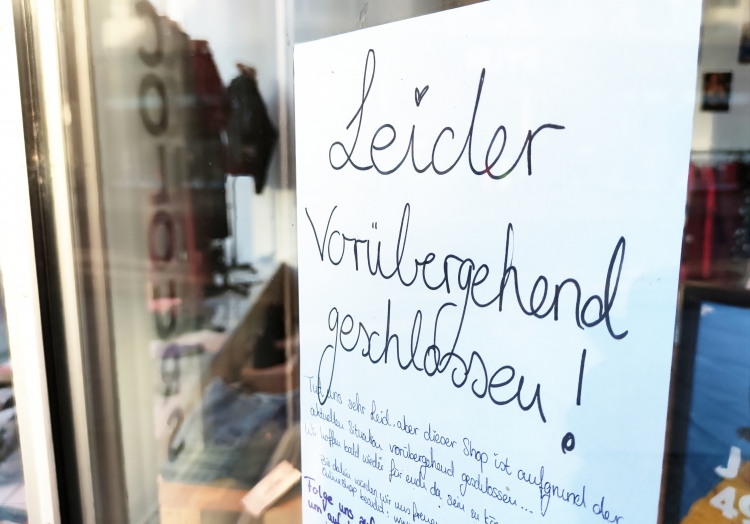 Leider
Vorübergehend
geschlossen!
Tut uns sehr Leid, aber dieser Shop ist aufgrund der
aktuellen Situation vorübergehend geschlossen...
Wir hoffen bald wieder für euch da sein zu kö
Bis dahin würden wir uns freuen
Onlineshop besucht
Folge uns auf
um auf
J
49